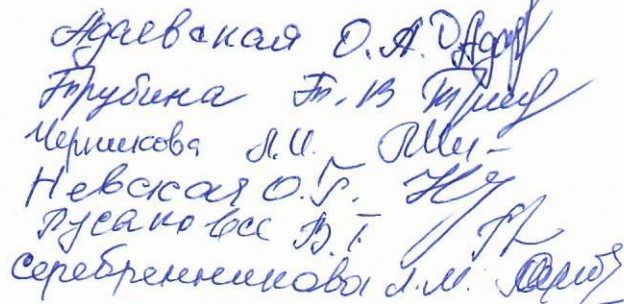 Адаевская О.А.
Трубина Т.В
Черникова Л.И.
Невская О.Г.
Русакова В.Г.
Серебренникова Л.М.